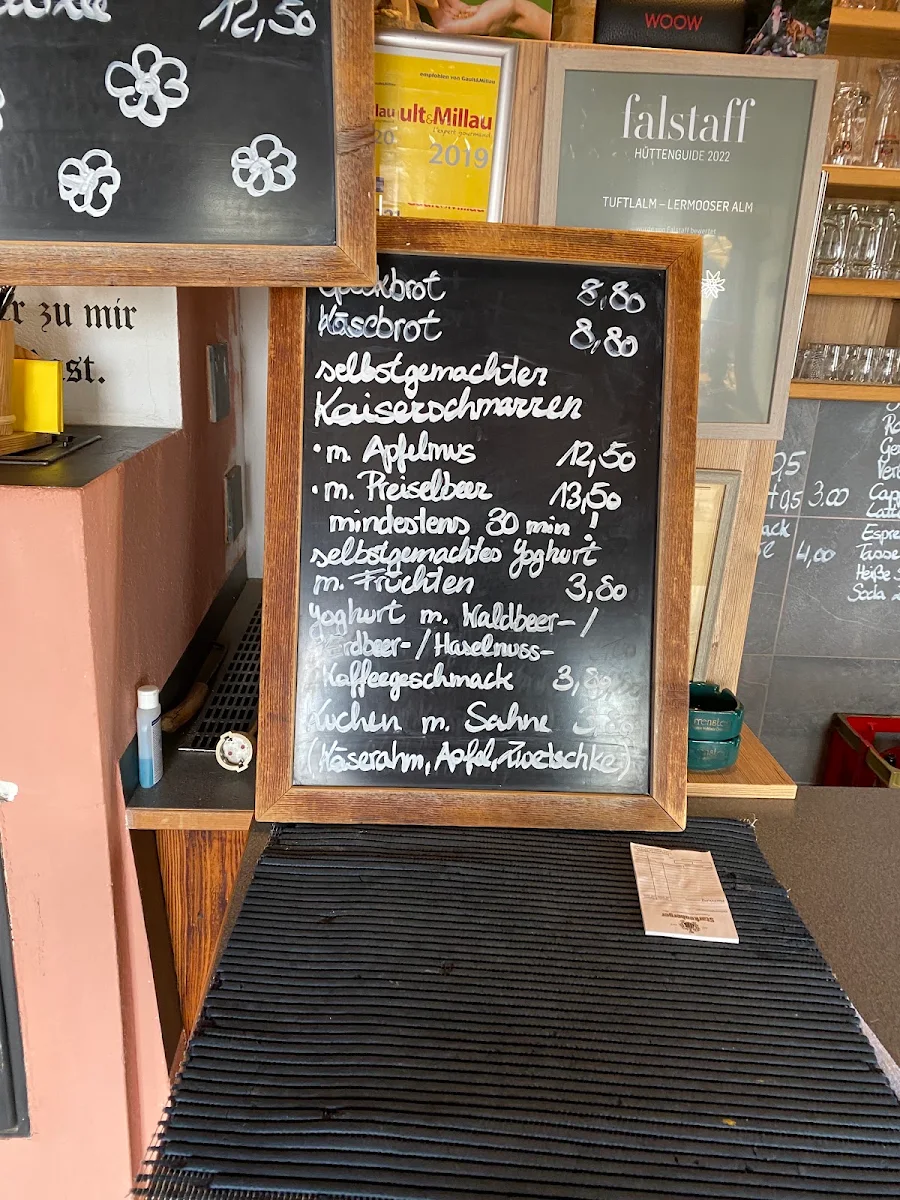 12,50
WOOW
empfohlen von Gault&Millau
ult&Millau
2019
falstaff
HÜTTENGUIDE 2022
TUFTLALM – LERMOOSER ALM
r zu mir
st.
Speckbrot 8,80
Käsebrot 8,80
selbstgemachter
Kaiserschmarren
• m. Apfelmus 12,50
• m. Preiselbeer 13,50
mindestens 30 min !
selbstgemachtes Yoghurt
m. Früchten 3,80
Yoghurt m. Waldbeer-/
rdbeer-/Haselnuss-
Kaffeegeschmack 3,80
Kuchen m. Sahne
(Käserahm, Apfel, Zwetschke)
0,5 3.00
4,00
Espre
Tasse
Heiße S
Soda
Starkenberger